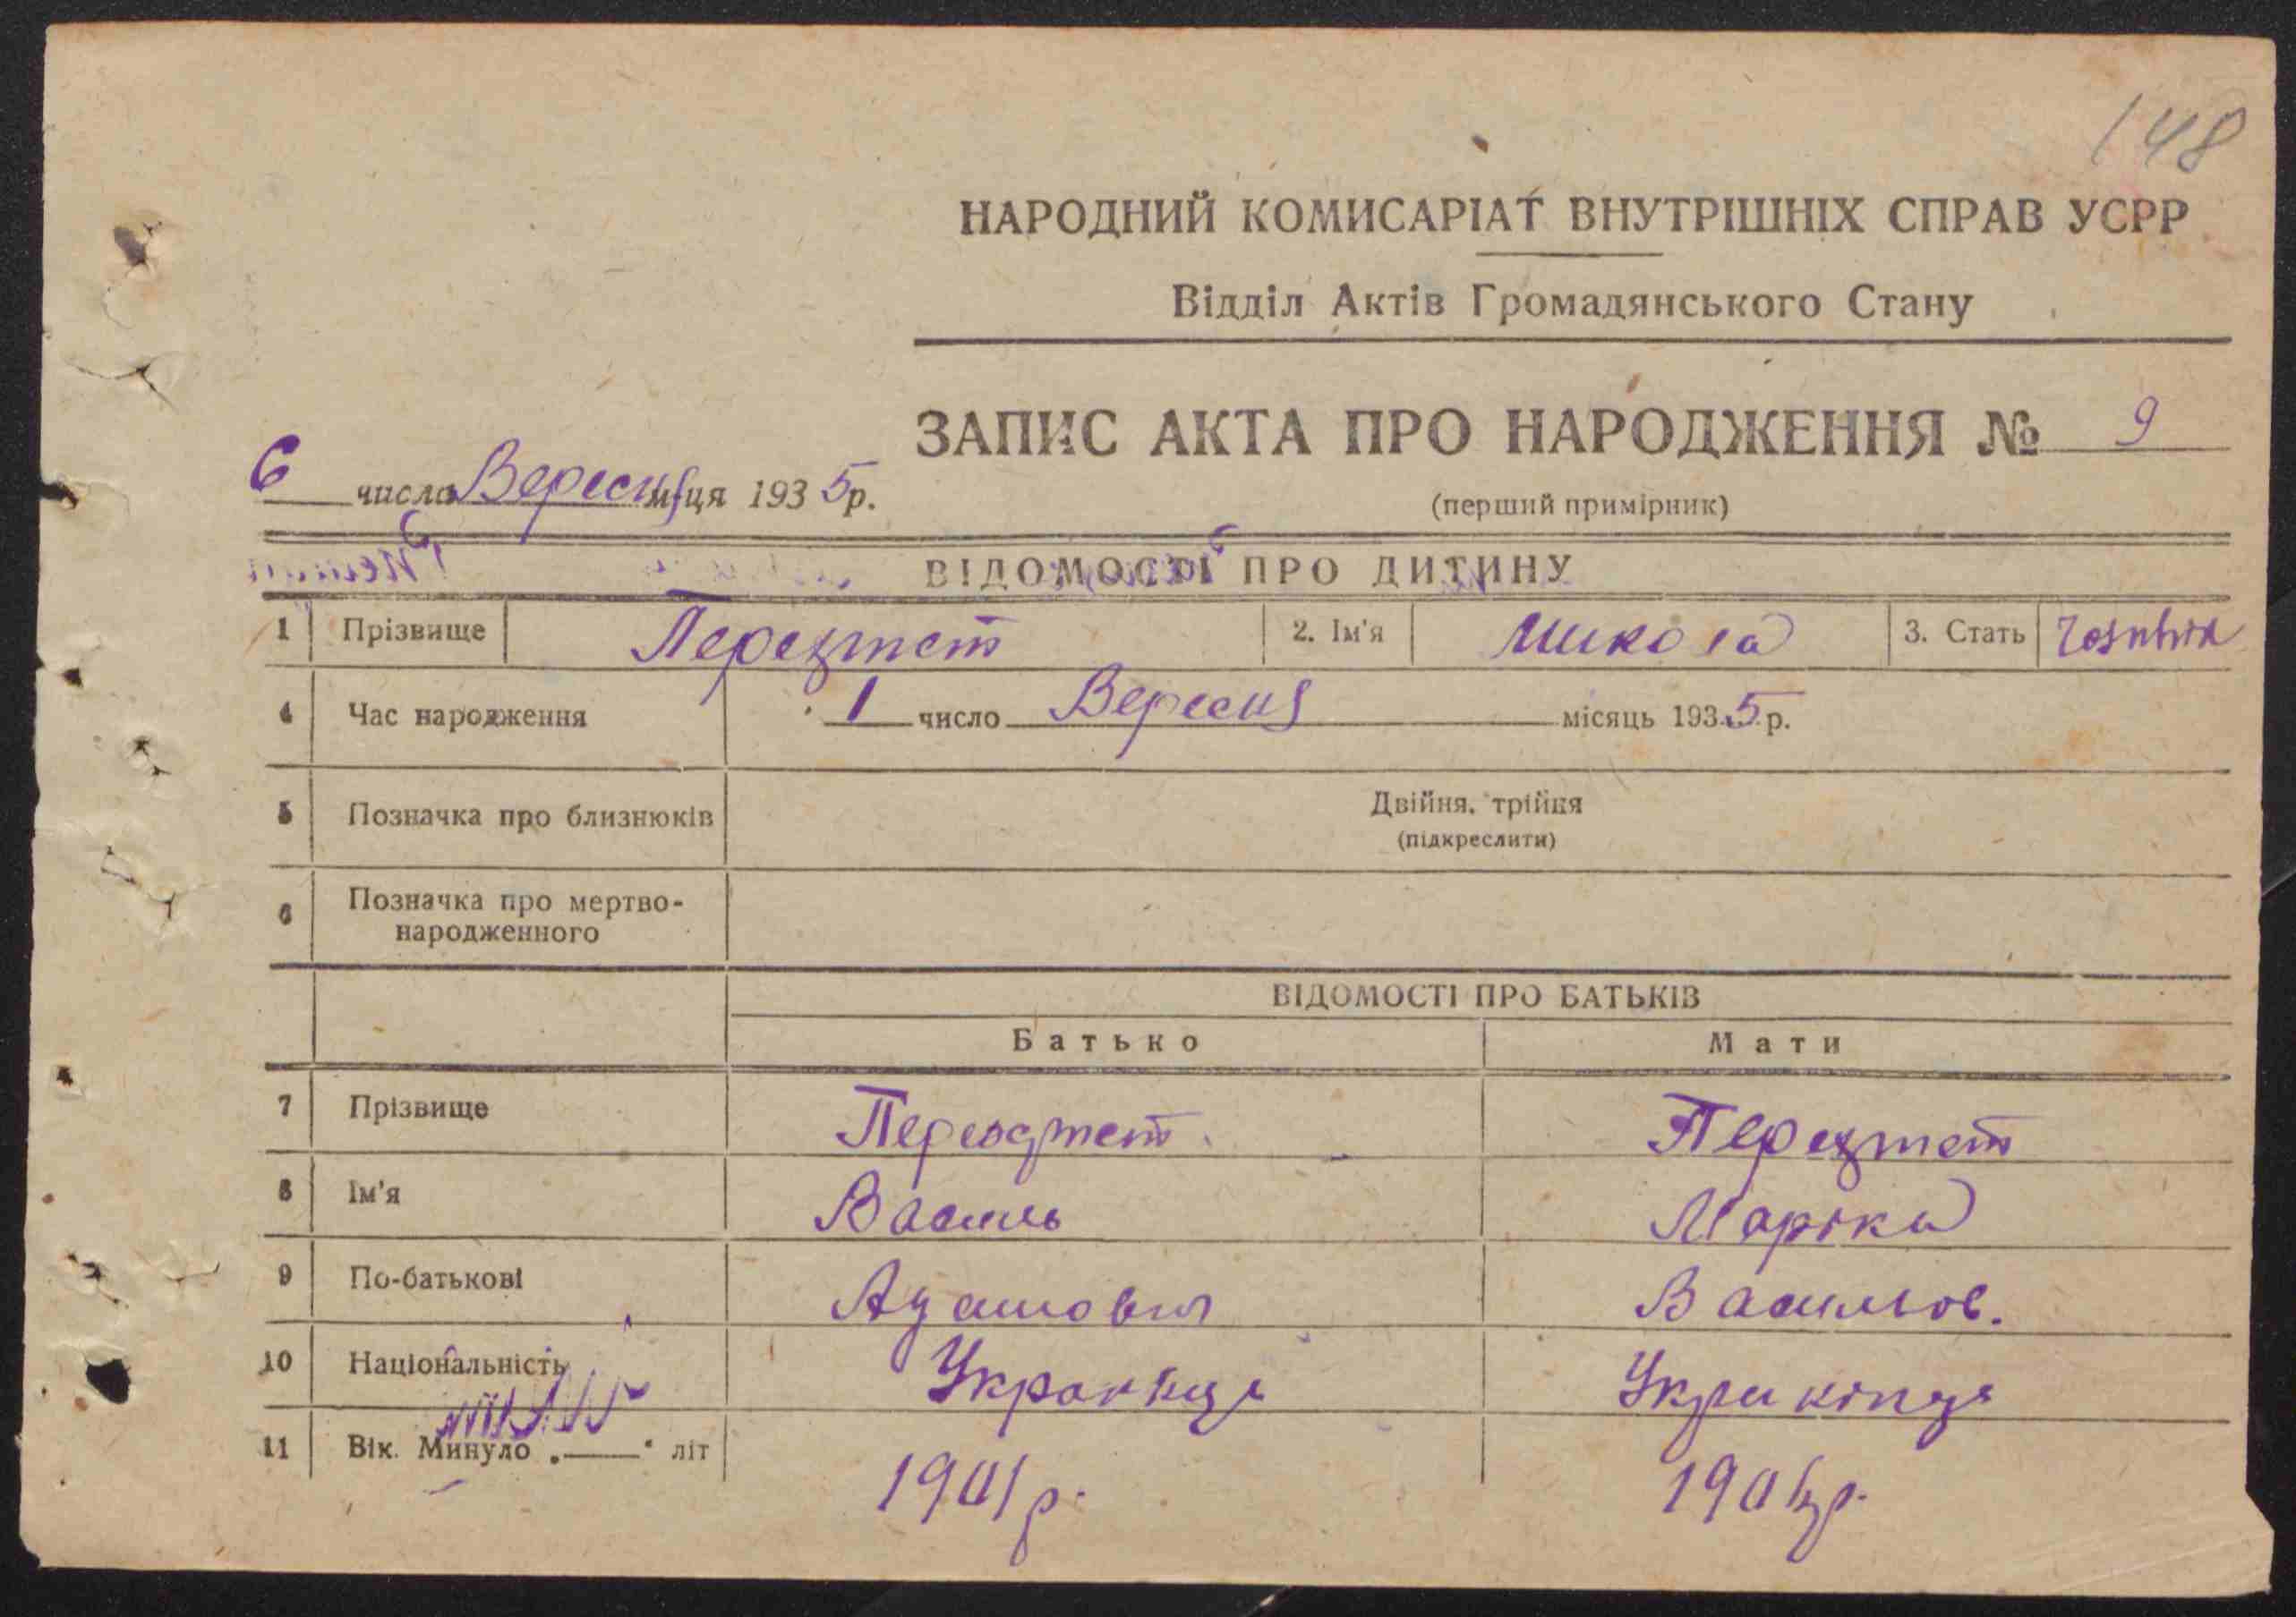 148
НАРОДНИЙ КОМИСАРІАТ ВНУТРІШНІХ СПРАВ УСРР
Відділ Актів Громадянського Стану
ЗАПИС АКТА ПРО НАРОДЖЕННЯ № 9
6 числа Вересня м-ця 1935 р.
(перший примірник)
ВІДОМОСТІ ПРО ДИТИНУ
1 Прізвище 2. Ім'я Микола 3. Стать
4 Час народження 1 число Вересня місяць 1935 р.
5 Позначка про близнюків Двійня, трійня
(підкреслити)
6 Позначка про мертво-
народженного
ВІДОМОСТІ ПРО БАТЬКІВ
Батько Мати
7 Прізвище
8 Ім'я Василь Маріка
9 По-батькові Адамович Василов.
10 Національність
11 Вік. Минуло літ 1901 р.